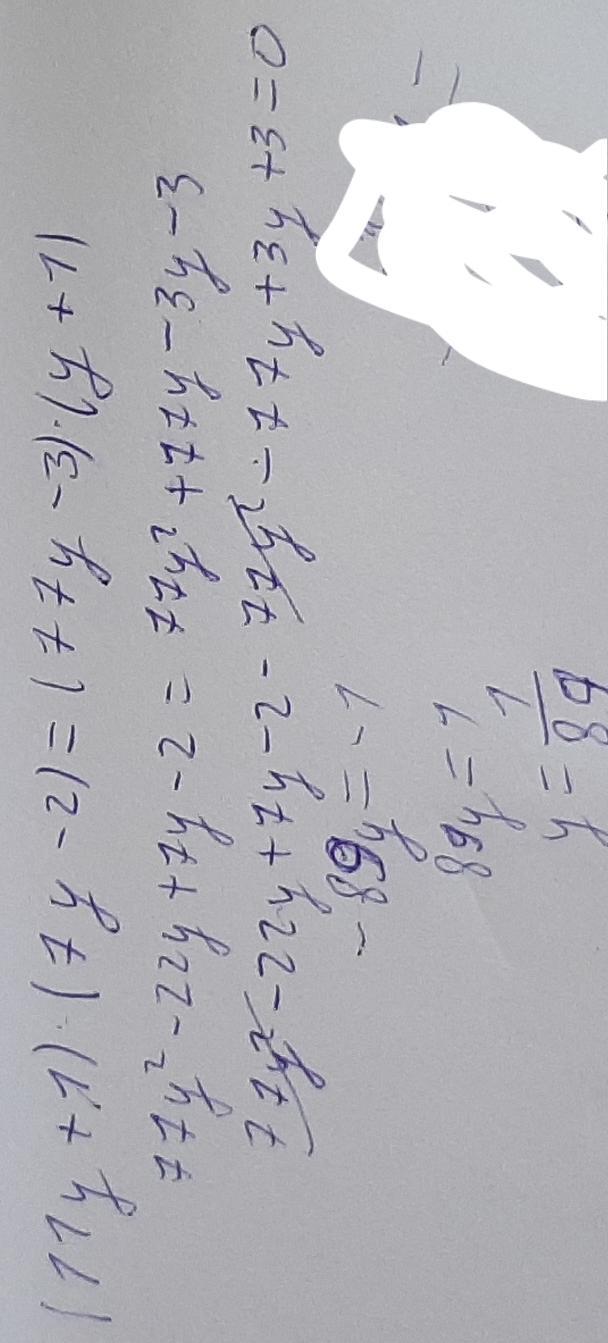 (11y+1)·(7y-2)=(77y-3)·(y+1)
77y²-22y+7y-2=77y²+77y-3y-3
77y²-22y+7y-2-77y²-77y+3y+3=0
-89y=-1
89y=1
y=1/89